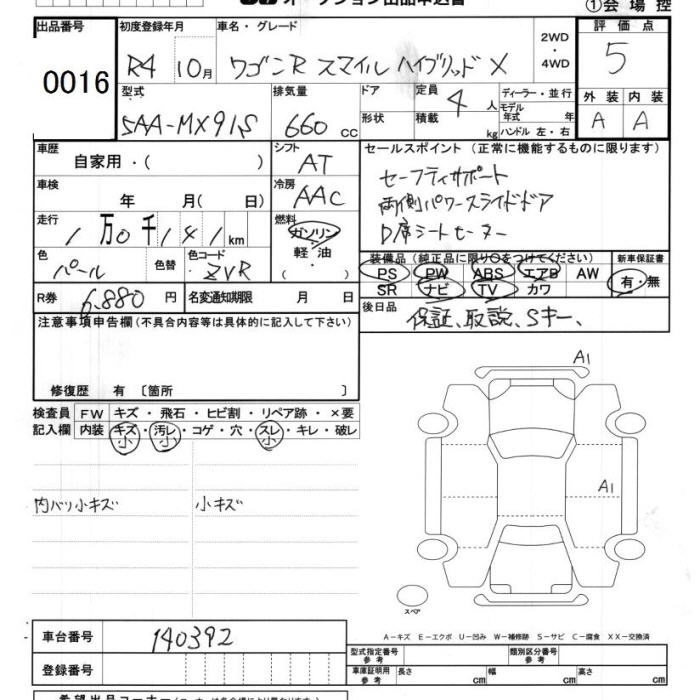 オークション出品申込書
①会場控
出品番号 初度登録年月 車名・グレード 2WD・4WD 評価点
0016 R4 10月 ワゴンR スマイル ハイブリッド X 5
型式 排気量 ドア 定員 4 人 ディーラー・並行 外装 内装
5AA-MX91S 660 cc 形状 積載 kg モデル年式 年 ハンドル 左・右 A A
車歴 自家用・( ) シフト AT セールスポイント(正常に機能するものに限ります)
車検 年 月( 日) 冷房 AAC セーフティサポート
両側パワースライドドア
D席シートヒーター
走行 1万0千141km 燃料 ガソリン・軽油・( )
色 パール 色替 色コード ZVR
装備品(純正品に限り○をつけてください) 新車保証書
PS PW ABS エアB AW 有・無
SR ナビ TV カワ
R券 6,880円 名変通知期限 月 日
後日品 保証、取説、Sキー、
注意事項申告欄(不具合内容等は具体的に記入して下さい)
修復歴 有 〔箇所 〕
検査員記入欄 FW キズ・飛石・ヒビ割・リペア跡・×要
内装 キズ・汚レ・コゲ・穴・スレ・キレ・破レ
小 小 小
内バリ小キズ 小キズ
A1
A1
スペア
A-キズ E-エクボ U-凹み W-補修跡 S-サビ C-腐食 XX-交換済
車台番号 140392
登録番号
型式指定番号 参考 類別区分番号 参考
車庫証明用 参考 長さ cm 幅 cm 高さ cm
希望出品コーナー